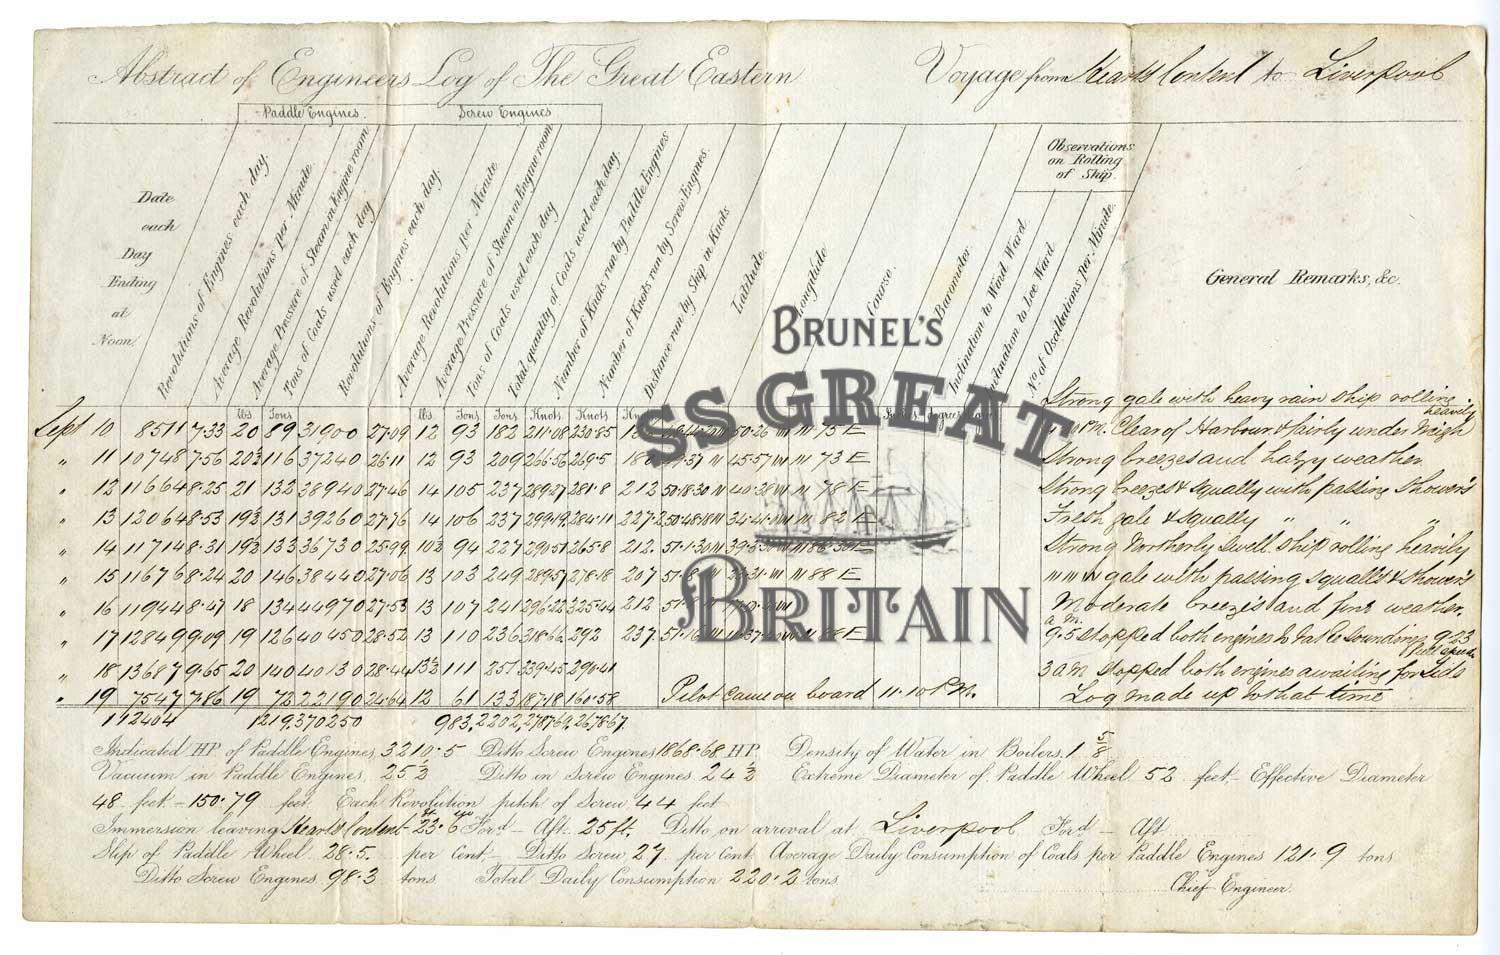 Abstract of Engineers Log of The Great Eastern Voyage from Hearts Content to Liverpool
Paddle Engines. Screw Engines
Date each Day Ending at Noon
Revolutions of Engines each day.
Average Revolutions per Minute
Average Pressure of Steam in Engine room
Tons of Coals used each day
Revolutions of Engines each day.
Average Revolutions per Minute
Average Pressure of Steam in Engine room
Tons of Coals used each day
Total quantity of Coals used each day.
Number of Knots run by Paddle Engines
Number of Knots run by Screw Engines.
Distance run by Ship in Knots
Latitude
Longitude
Course
Barometer
Inclination to Wind Ward
Inclination to Lee Ward
Observations on Rolling of Ship.
No. of Oscillations per Minute.
General Remarks, &c.
lbs Tons lbs. Tons Tons Knots Knots
Strong gale with heavy rain ship rolling heavily
Sept 10 8511 7·33 20 89 31900 27·09 12 93 182 211·08 230·85 P.M. Clear of Harbour & fairly under Weigh
" 11 10748 7·56 20½ 116 37240 26·11 12 93 209 266·56 269·5 45·57 W 73 E Strong breezes and hazy weather
" 12 11664 8·25 21 132 38940 27·46 14 105 237 289·27 281·8 212 50·18·30 N 40·38 W 78 E Strong breezes & squally with passing Shower's
" 13 12064 8·53 19½ 131 39260 27·76 14 106 237 299·19 284·11 227·2 50·48·18 N 82 E Fresh gale & squally " " "
" 14 11714 8·31 19½ 133 36730 25·99 10½ 94 227 290·51 265·8 212· 51·1·30 N E Strong Northerly Swell. ship rolling heavily
" 15 11676 8·24 20 146 38440 27·06 13 103 249 289·57 278·18 207 88 E gale with passing squalls & Shower's
" 16 11944 8·47 18 134 44970 27·53 13 107 241 296·22 325·44 212 Moderate breeze's and fine weather.
" 17 12849 9·09 19 126 40450 28·52 13 110 236 318·66 292 237· 51·16 N 88 E a.m. 9·5 stopped both engines to take Soundings 9·23 full speed
" 18 13687 9·65 20 140 40130 28·44 13½ 111 251 339·45 290·41 3 a.m. stopped both engines awaiting for tide
" 19 7547 7·86 19 72 22190 24·64 12 61 133 187·18 160·58 Pilot came on board 11·10 P.M. Log made up to that time
112404 1219, 370250 983, 2202, 2787·69, 2678·67
Indicated HP of Paddle Engines, 3210·5 Ditto Screw Engines 1868·68 HP. Density of Water in Boilers, 1 5/8
Vacuum in Paddle Engines, 25½ Ditto in Screw Engines 24½ Extreme Diameter of Paddle Wheel 52 feet, Effective Diameter
48 feet - 150·79 feet. Each Revolution pitch of Screw, 44 feet
Immersion leaving Hearts Content 23·6 Ford - Aft. 25 ft. Ditto, on arrival at Liverpool Ford - Aft
Slip of Paddle Wheel 28·5. per Cent, - Ditto Screw, 27 per Cent Average Daily Consumption of Coals per Paddle Engines 121·9 tons
Ditto Screw Engines 98·3 tons. Total Daily Consumption 220·2 tons. Chief Engineer.
BRUNEL'S
SS GREAT
BRITAIN